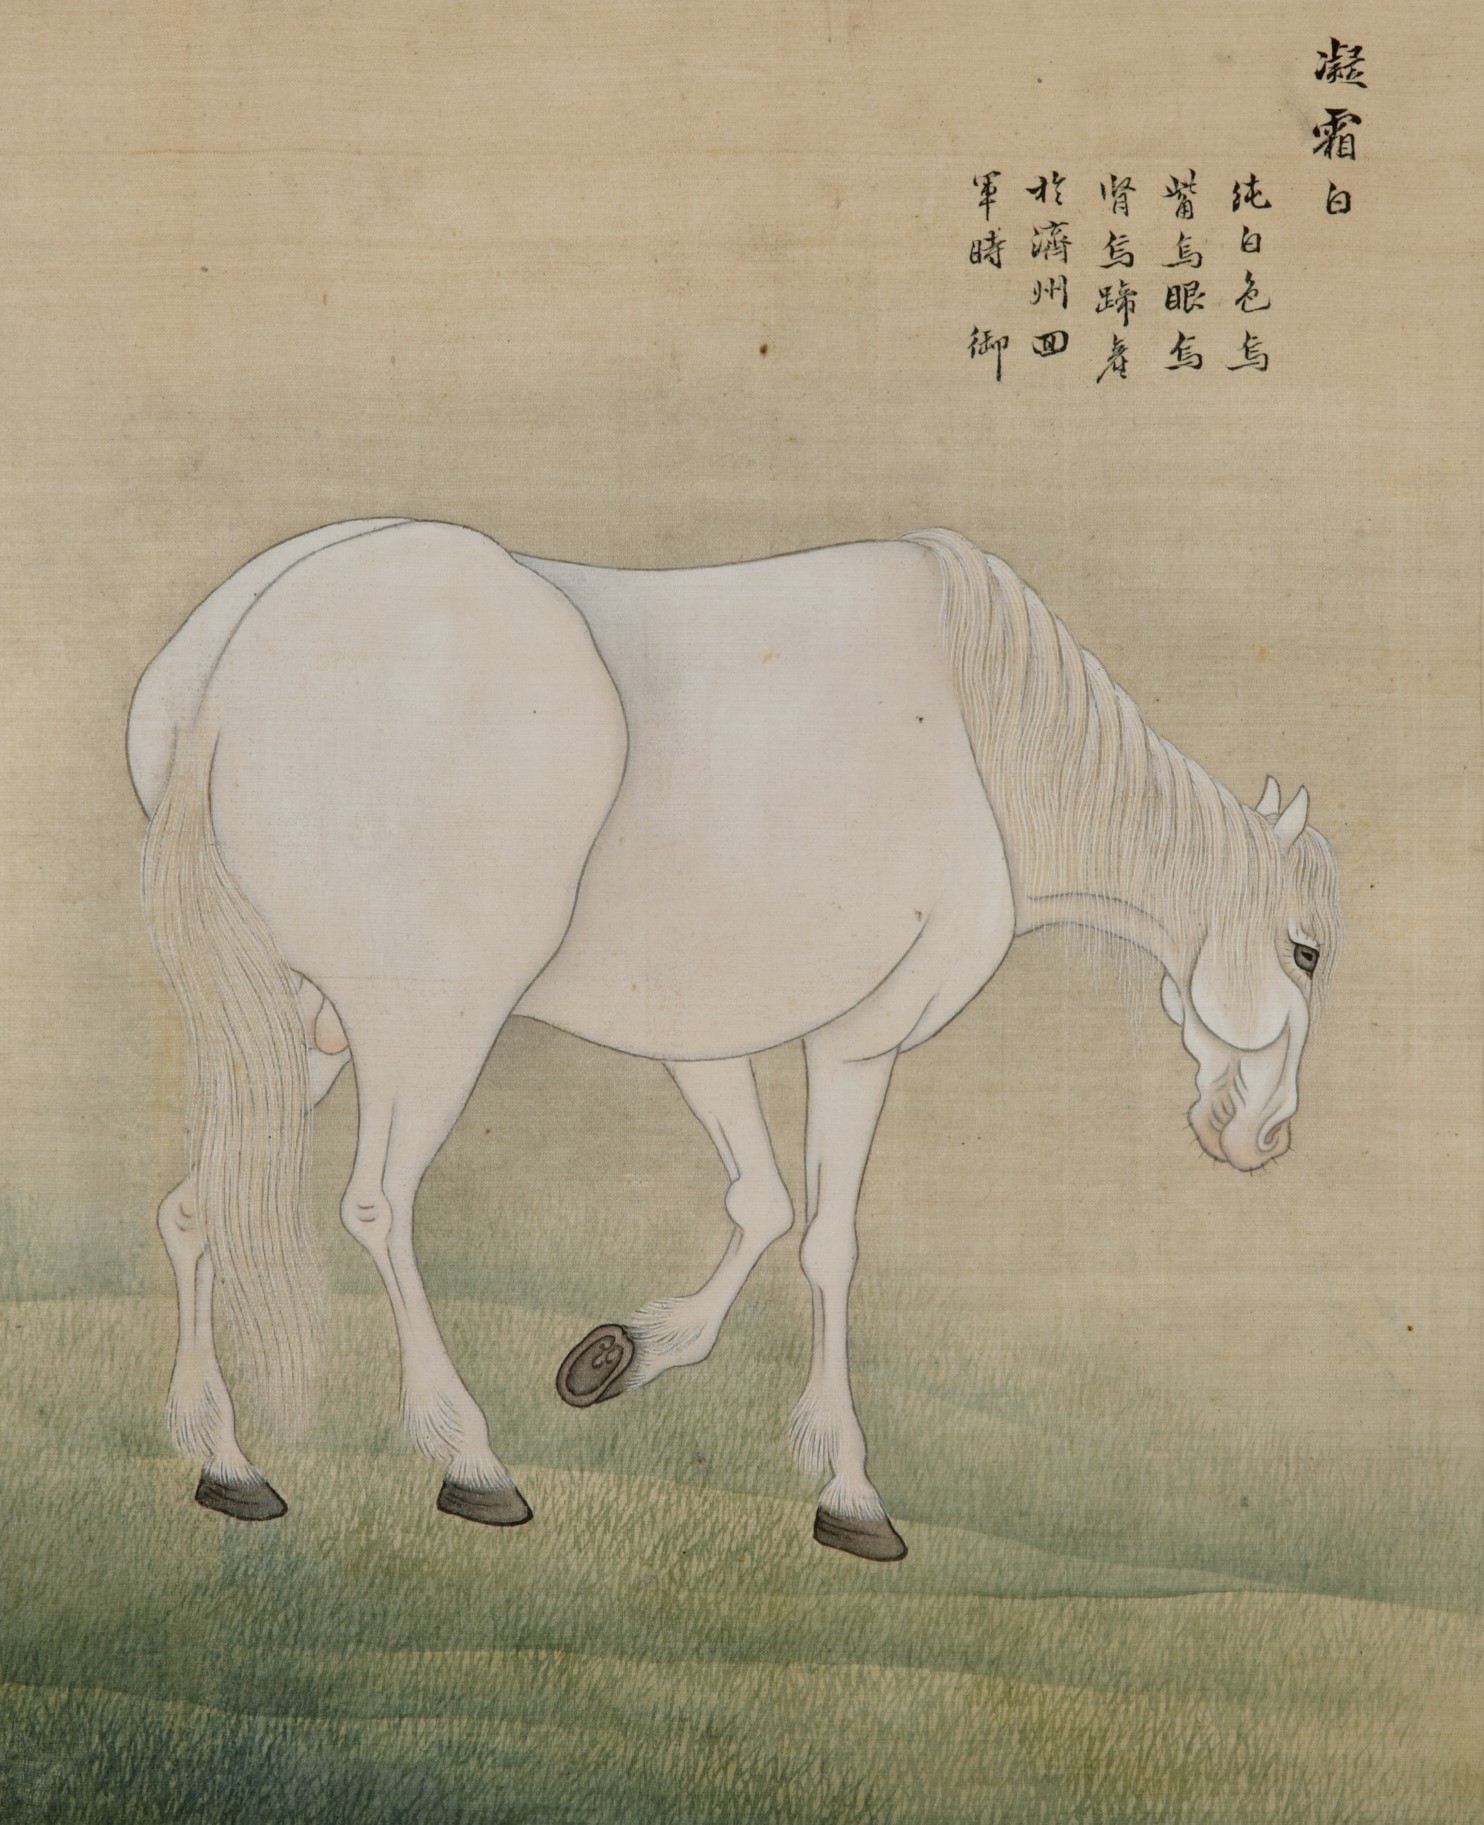 凝霜白
純白色烏
觜烏眼烏
腎烏蹄産
於濟州回
軍時 御